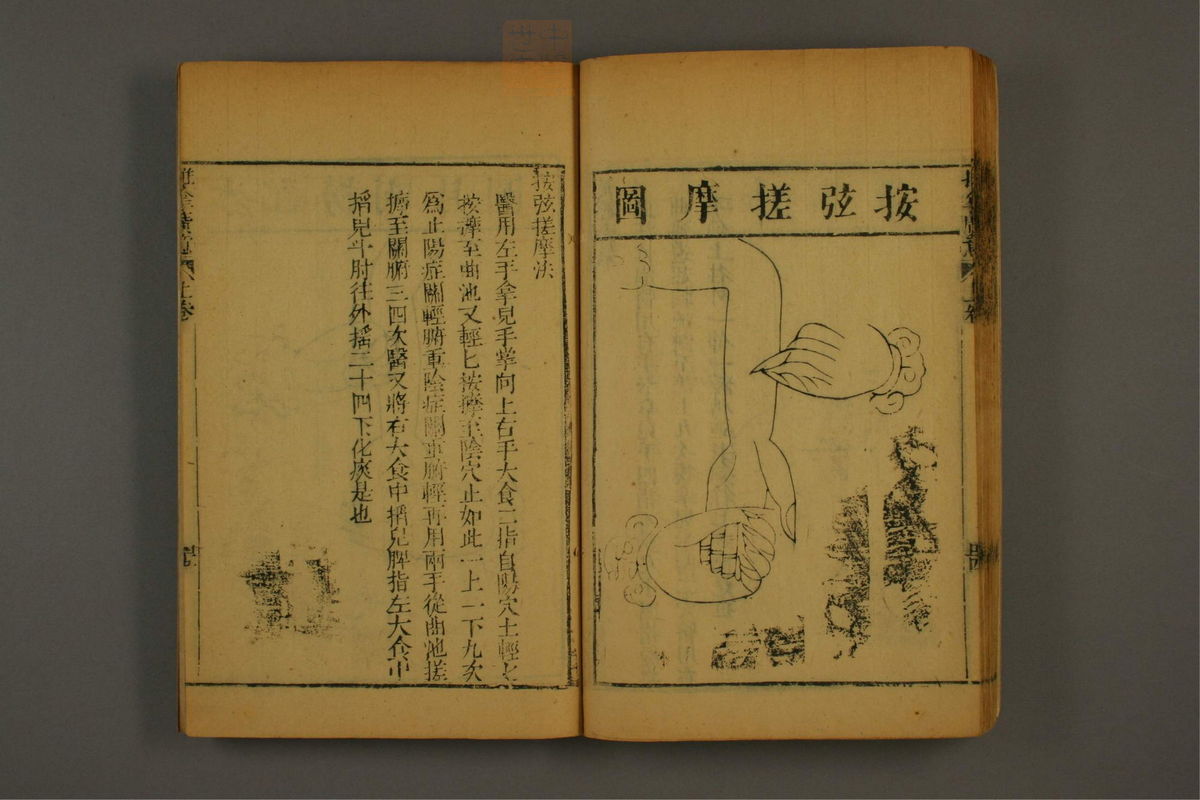 按弦搓摩圖
按弦搓摩法
醫用左手拿兒手掌向上右手大食二指自陽穴上輕匕
按摩至曲池又輕匕按摩至陰穴止如此一上一下九次
爲止陽症關輕腑重陰症關重腑輕再用兩手從曲池搓
摩至關腑三四次醫又將右大食中掐兒脾指左大食中
掐兒斗肘往外搖二十四下化痰是也
上卷